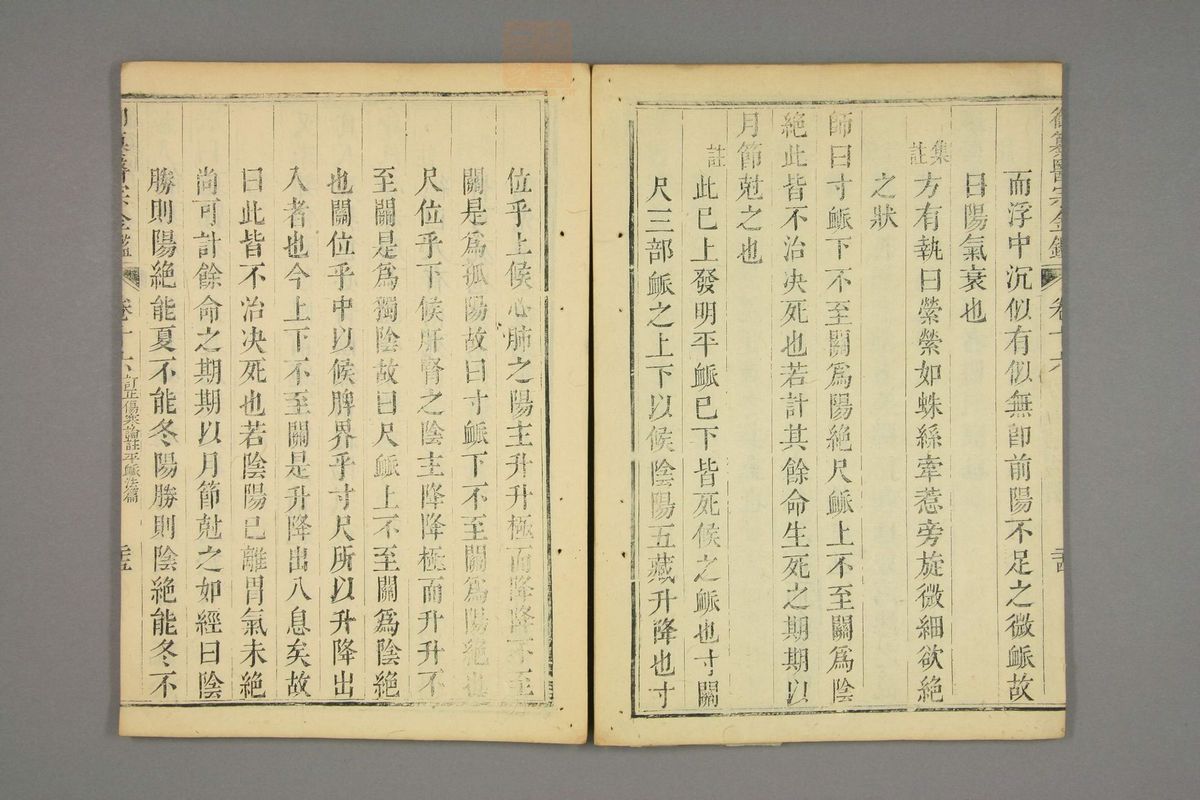 御纂醫宗金鑑 卷十六 二十四
而浮中沉似有似無即前陽不足之微脈故
曰陽氣衰也
集註方有執曰縈縈如蛛絲牽惹旁旋微細欲絕
之狀
師曰寸脈下不至關爲陽絕尺脈上不至關爲陰
絕此皆不治决死也若計其餘命生死之期期以
月節尅之也
註此巳上發明平脈巳下皆死候之脈也寸關
尺三部脈之上下以候陰陽五藏升降也寸
位乎上候心肺之陽主升升極而降降不至
關是爲孤陽故曰寸脈下不至關爲陽絕也
尺位乎下候肝腎之陰主降降極而升升不
至關是爲獨陰故曰尺脈上不至關爲陰絕
也關位乎中以候脾界乎寸尺所以升降出
入者也今上下不至關是升降出入息矣故
曰此皆不治决死也若陰陽巳離胃氣未絕
尚可計餘命之期期以月節尅之如經曰陰
勝則陽絕能夏不能冬陽勝則陰絕能冬不
醫宗金鑑 卷十六 訂正傷寒論註平脈法篇 二十五